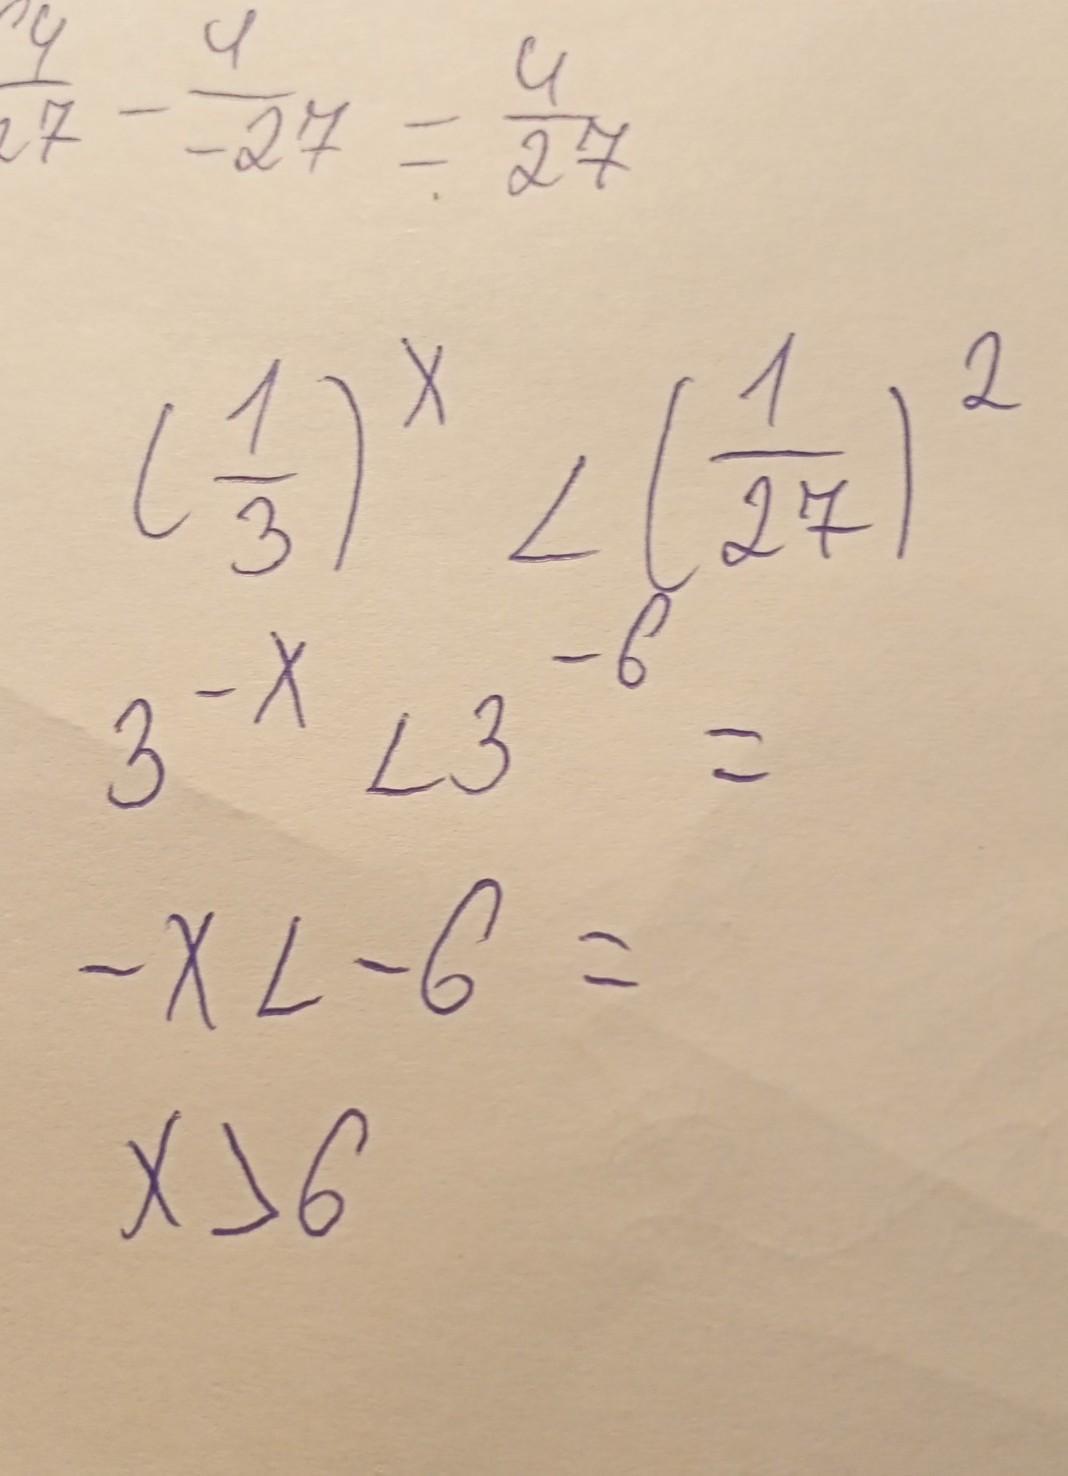 4/27 - 4/-27 = 4/27
(1/3)^x < (1/27)^2
3^-x < 3^-6 =
-x < -6 =
x > 6